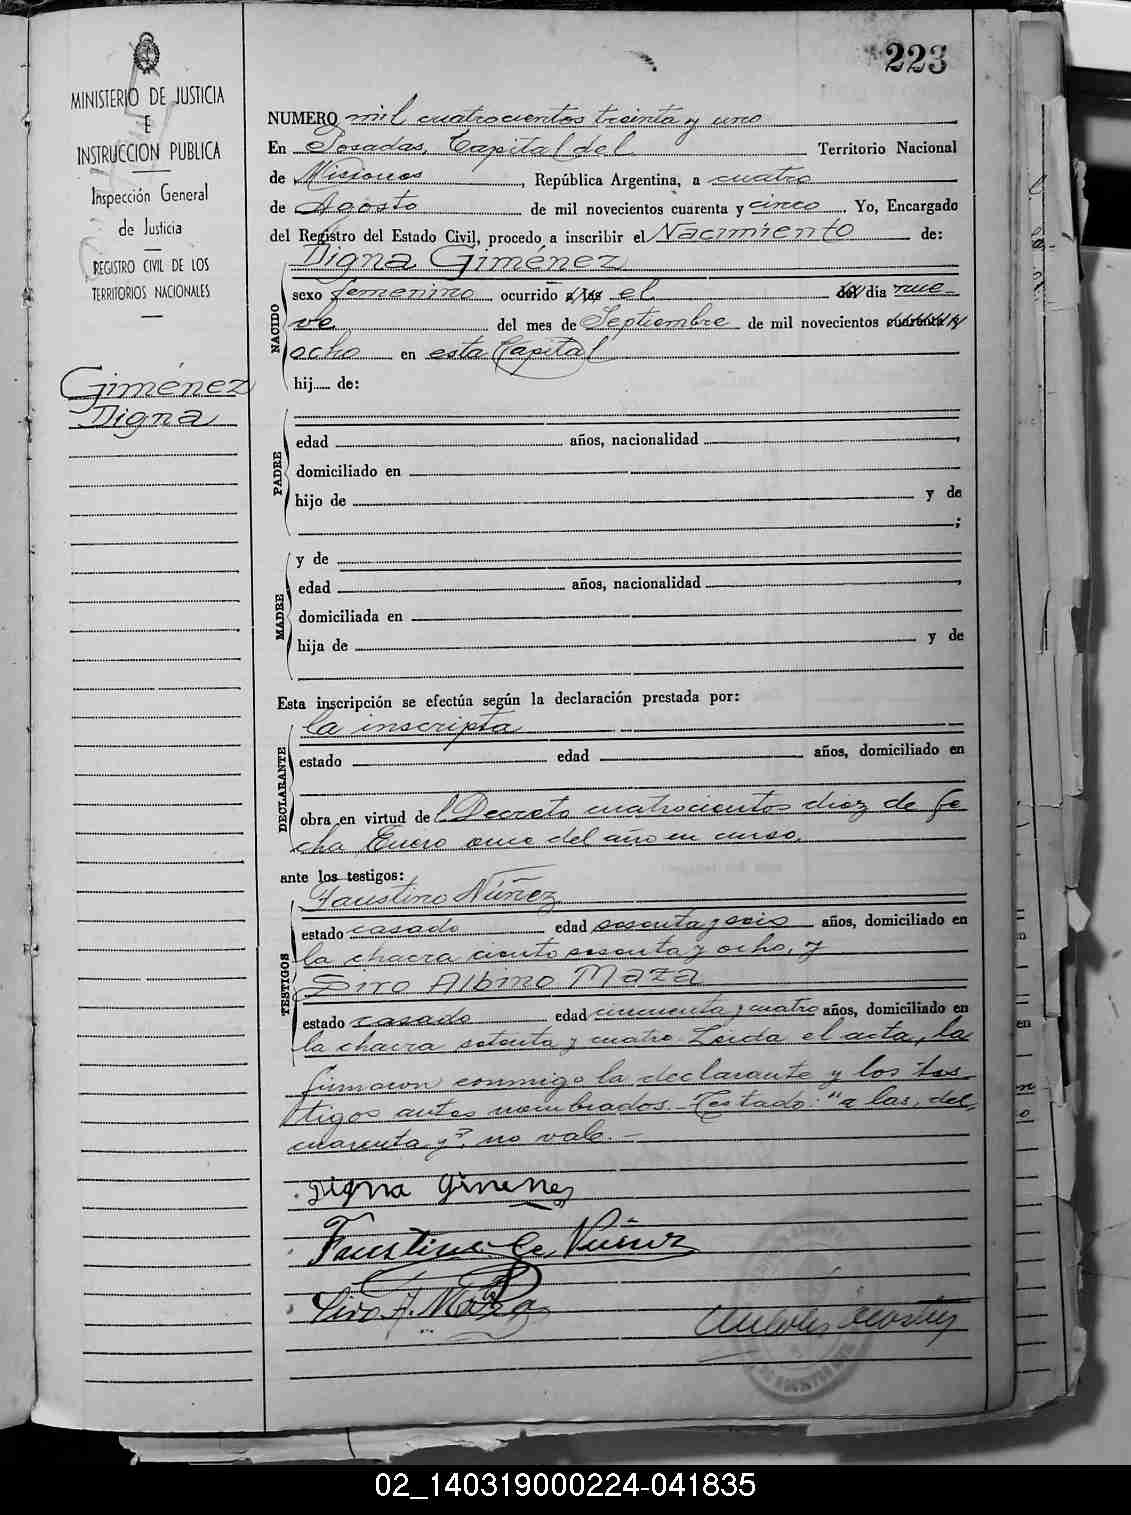 223
MINISTERIO DE JUSTICIA
E
INSTRUCCION PUBLICA
Inspección General
de Justicia
REGISTRO CIVIL DE LOS
TERRITORIOS NACIONALES
Giménez
Digna
NUMERO mil cuatrocientos treinta y uno
En Posadas, Capital del Territorio Nacional
de Misiones, República Argentina, a cuatro
de Agosto de mil novecientos cuarenta y cinco. Yo, Encargado
del Registro del Estado Civil, procedo a inscribir el Nacimiento de:
NACIDO
Digna Giménez
sexo femenino ocurrido a las el del dia nue-
ve del mes de Septiembre de mil novecientos cuarenta y
ocho en esta Capital
hij de:
PADRE
edad años, nacionalidad ,
domiciliado en
hijo de y de
;
MADRE
y de
edad años, nacionalidad ,
domiciliada en
hija de y de
Esta inscripción se efectúa según la declaración prestada por:
DECLARANTE
la inscripta
estado edad años, domiciliado en
obra en virtud del Decreto cuatrocientos diez de fe
cha Enero once del año en curso,
ante los testigos:
TESTIGOS
Faustino Núñez
estado casado edad sesenta y seis años, domiciliado en
la chacra ciento sesenta y ocho, y
Siro Albino Maza
estado casado edad cincuenta y cuatro años, domiciliado en
la chacra setenta y cuatro. Leida el acta, la
firmaron conmigo la declarante y los tes
tigos antes nombrados.- Testado: "a las, del,
cuarenta y", no vale.-
Digna Gimenez
Faustino Nuñez
Siro A. Maza
02_140319000224-041835